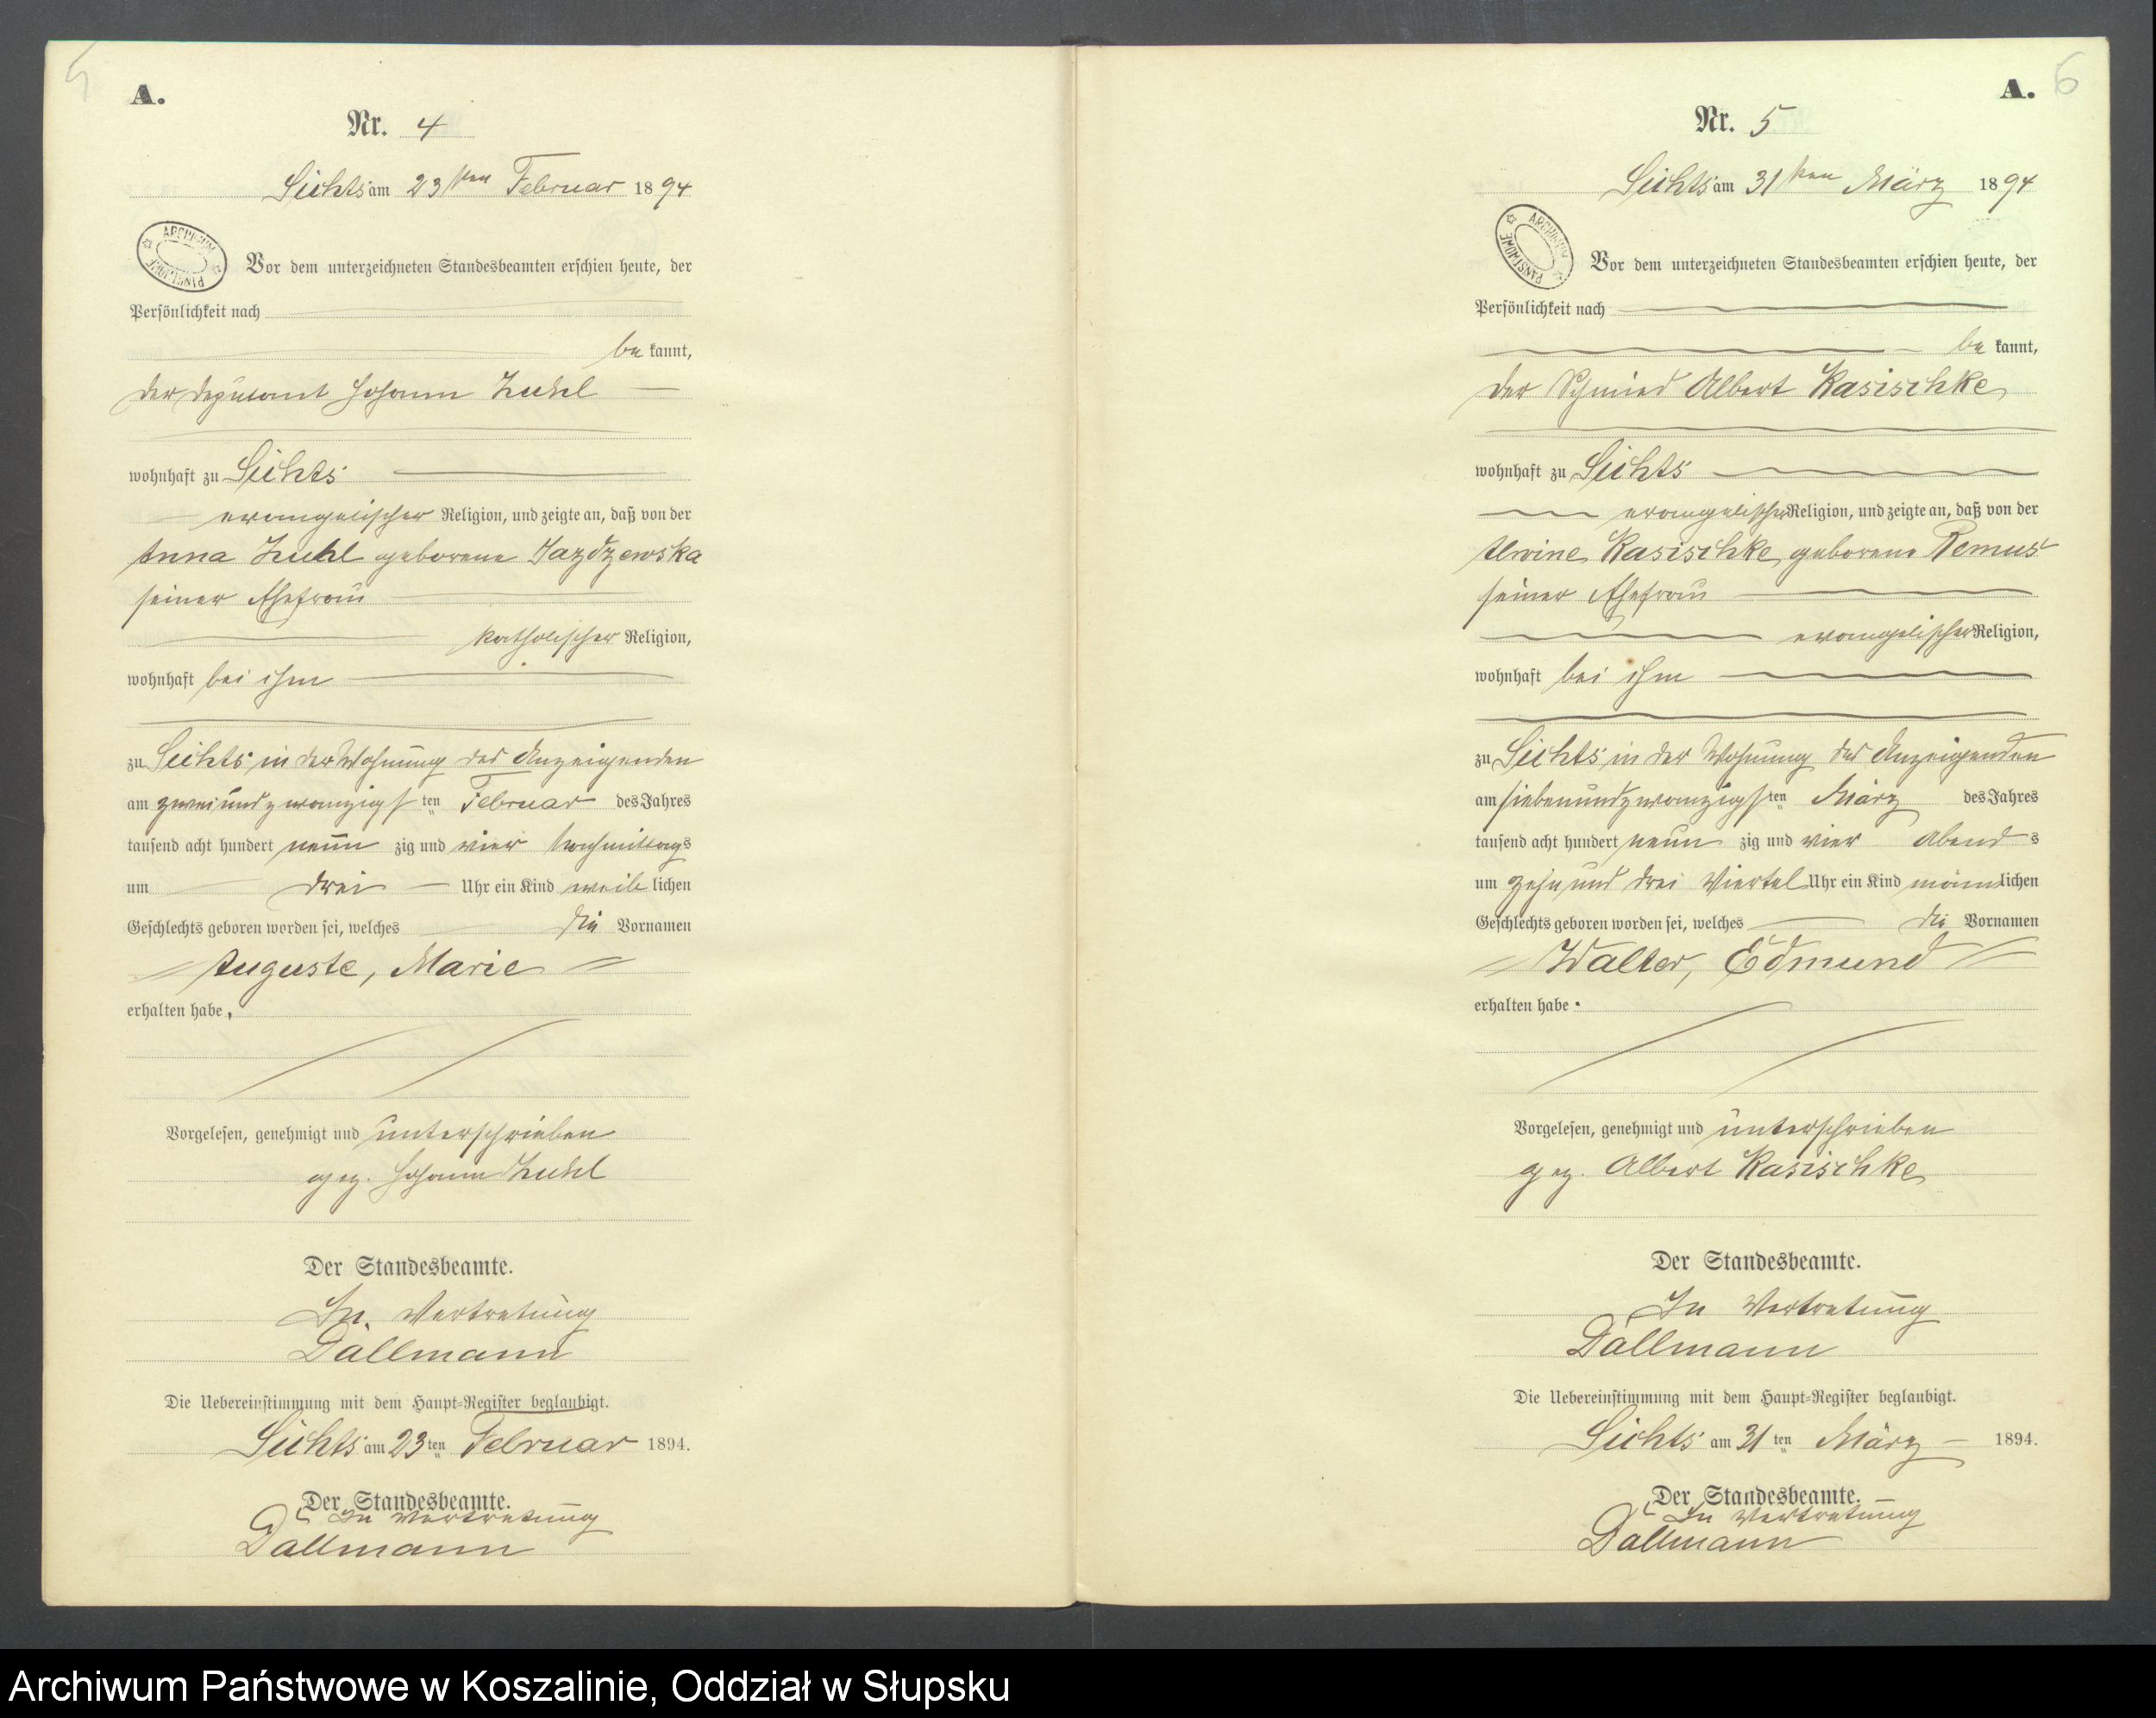 5
A.
Nr. 4
Sichts am 23ten Februar 1894
ARCHIWUM PAŃSTWOWE
Vor dem unterzeichneten Standesbeamten erschien heute, der
Persönlichkeit nach
be kannt,
der Deputant Johann Zuehl
wohnhaft zu Sichts
evangelischer Religion, und zeigte an, daß von der
Anna Zuehl geborene Jazdzewska
seiner Ehefrau
katholischer Religion,
wohnhaft bei ihm
zu Sichts in der Wohnung des Anzeigenden
am zweiundzwanzigsten Februar des Jahres
tausend acht hundert neun zig und vier Nachmittags
um drei Uhr ein Kind weib lichen
Geschlechts geboren worden sei, welches die Vornamen
Auguste, Marie
erhalten habe.
Vorgelesen, genehmigt und unterschrieben
gez. Johann Zuehl
Der Standesbeamte.
In Vertretung
Dallmann
Die Uebereinstimmung mit dem Haupt-Register beglaubigt.
Sichts am 23ten Februar 1894.
Der Standesbeamte.
In Vertretung
Dallmann
6
A.
Nr. 5
Sichts am 31ten März 1894
ARCHIWUM PAŃSTWOWE
Vor dem unterzeichneten Standesbeamten erschien heute, der
Persönlichkeit nach
be kannt,
der Schmied Albert Kasischke
wohnhaft zu Sichts
evangelischer Religion, und zeigte an, daß von der
Alwine Kasischke geborene Remus
seiner Ehefrau
evangelischer Religion,
wohnhaft bei ihm
zu Sichts in der Wohnung des Anzeigenden
am siebenundzwanzigsten März des Jahres
tausend acht hundert neun zig und vier Abends
um zehn und drei Viertel Uhr ein Kind männlichen
Geschlechts geboren worden sei, welches die Vornamen
Walter, Edmund
erhalten habe.
Vorgelesen, genehmigt und unterschrieben
gez. Albert Kasischke
Der Standesbeamte.
In Vertretung
Dallmann
Die Uebereinstimmung mit dem Haupt-Register beglaubigt.
Sichts am 31ten März 1894.
Der Standesbeamte.
In Vertretung
Dallmann
Archiwum Państwowe w Koszalinie, Oddział w Słupsku